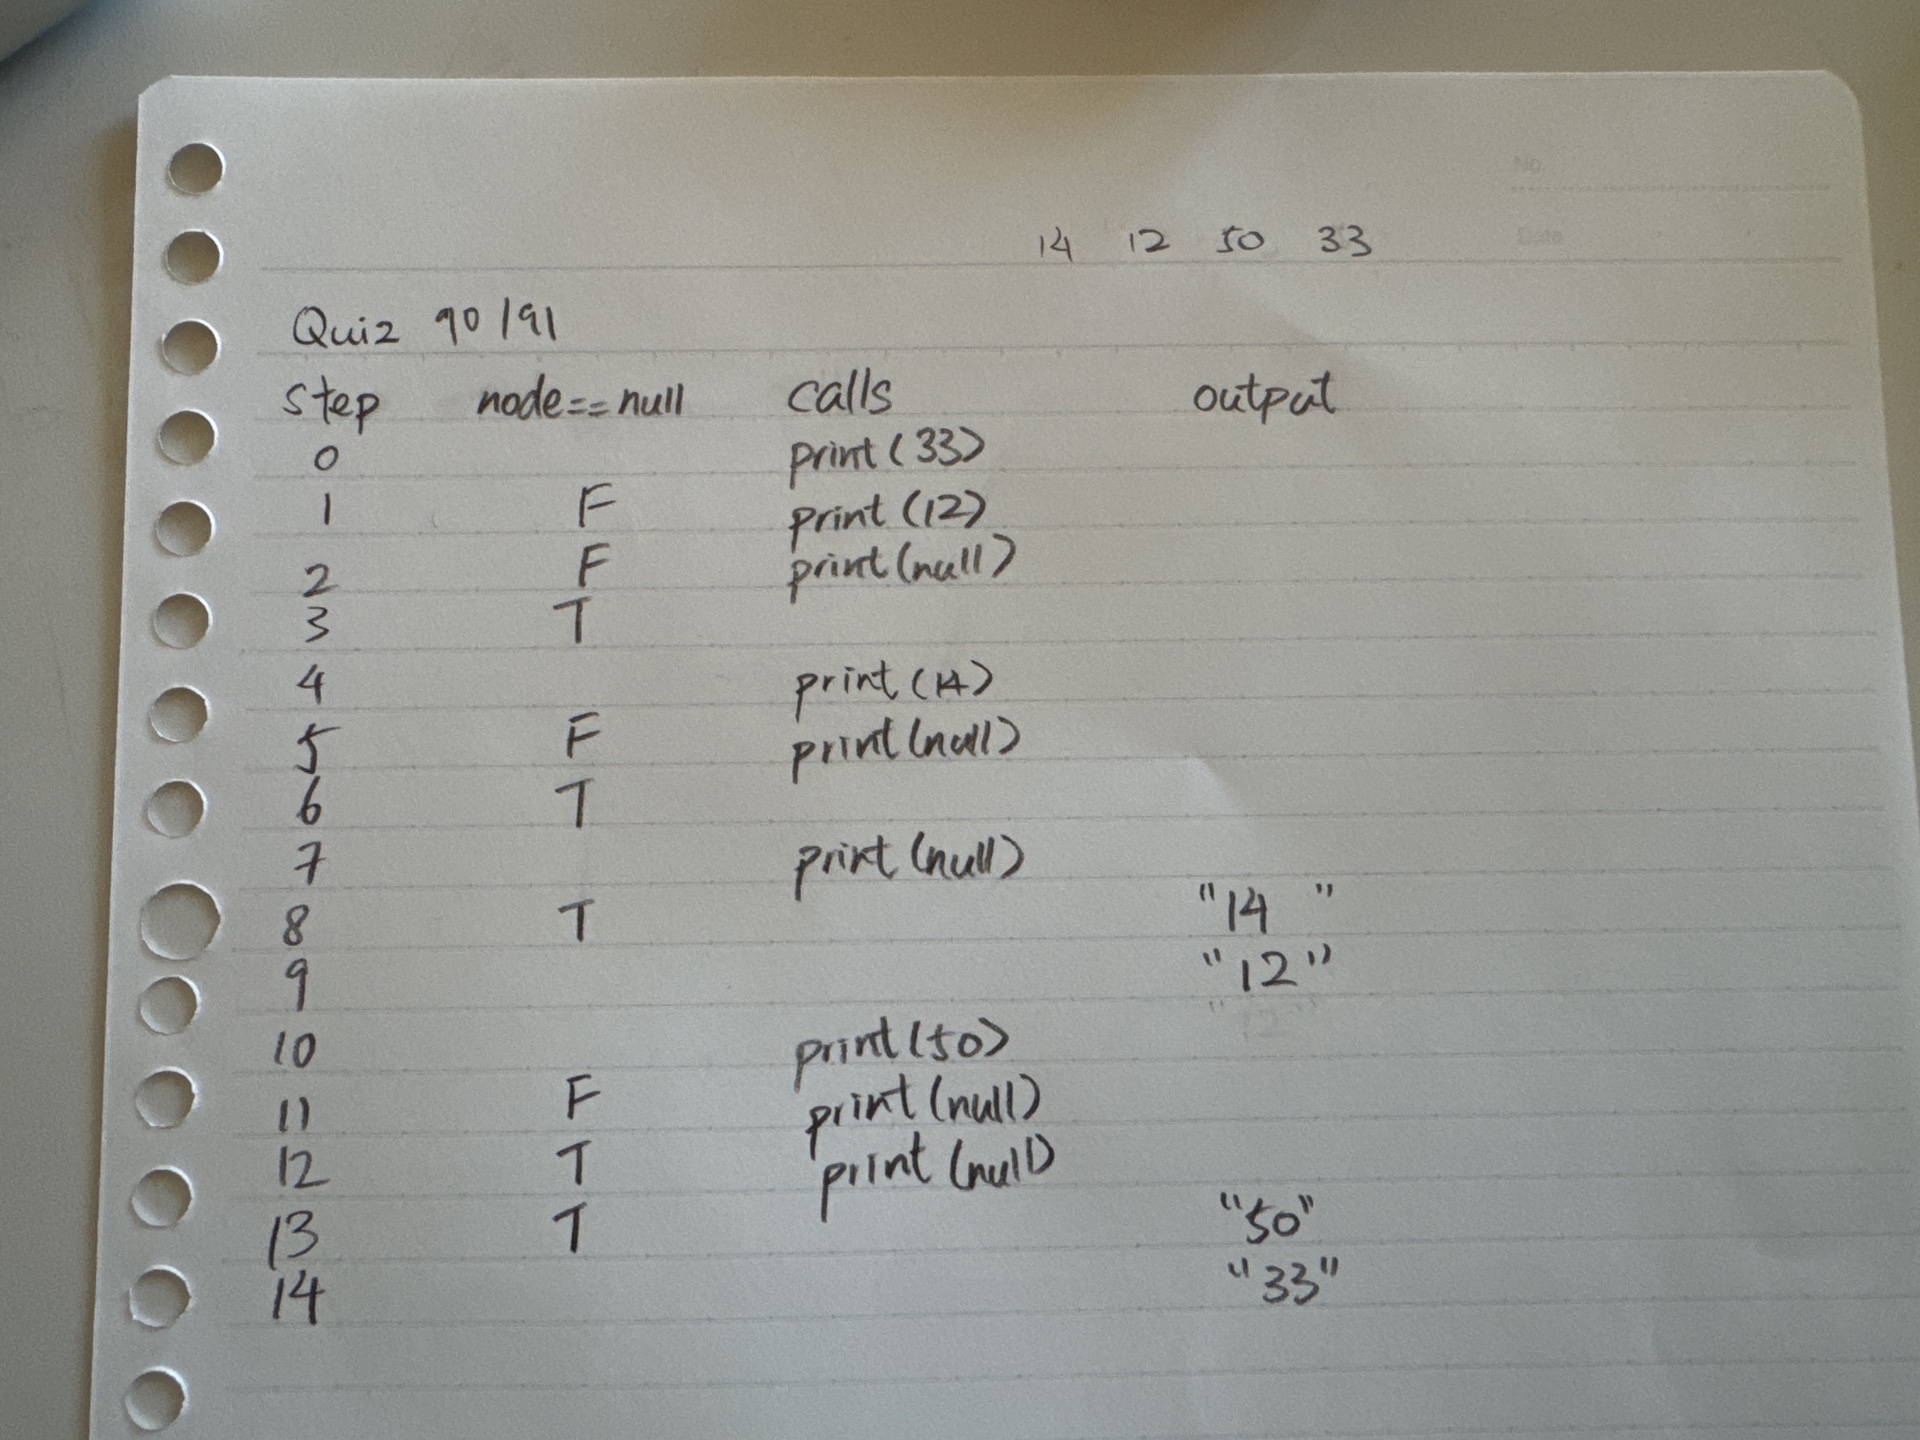 No.
14 12 50 33
Date
Quiz 90/91
step node==null calls output
0 print(33)
1 F print(12)
2 F print(null)
3 T
4 print(14)
5 F print(null)
6 T
7 print(null)
8 T "14 "
9 "12"
"12"
10 print(50)
11 F print(null)
12 T print(null)
13 T "50"
14 "33"